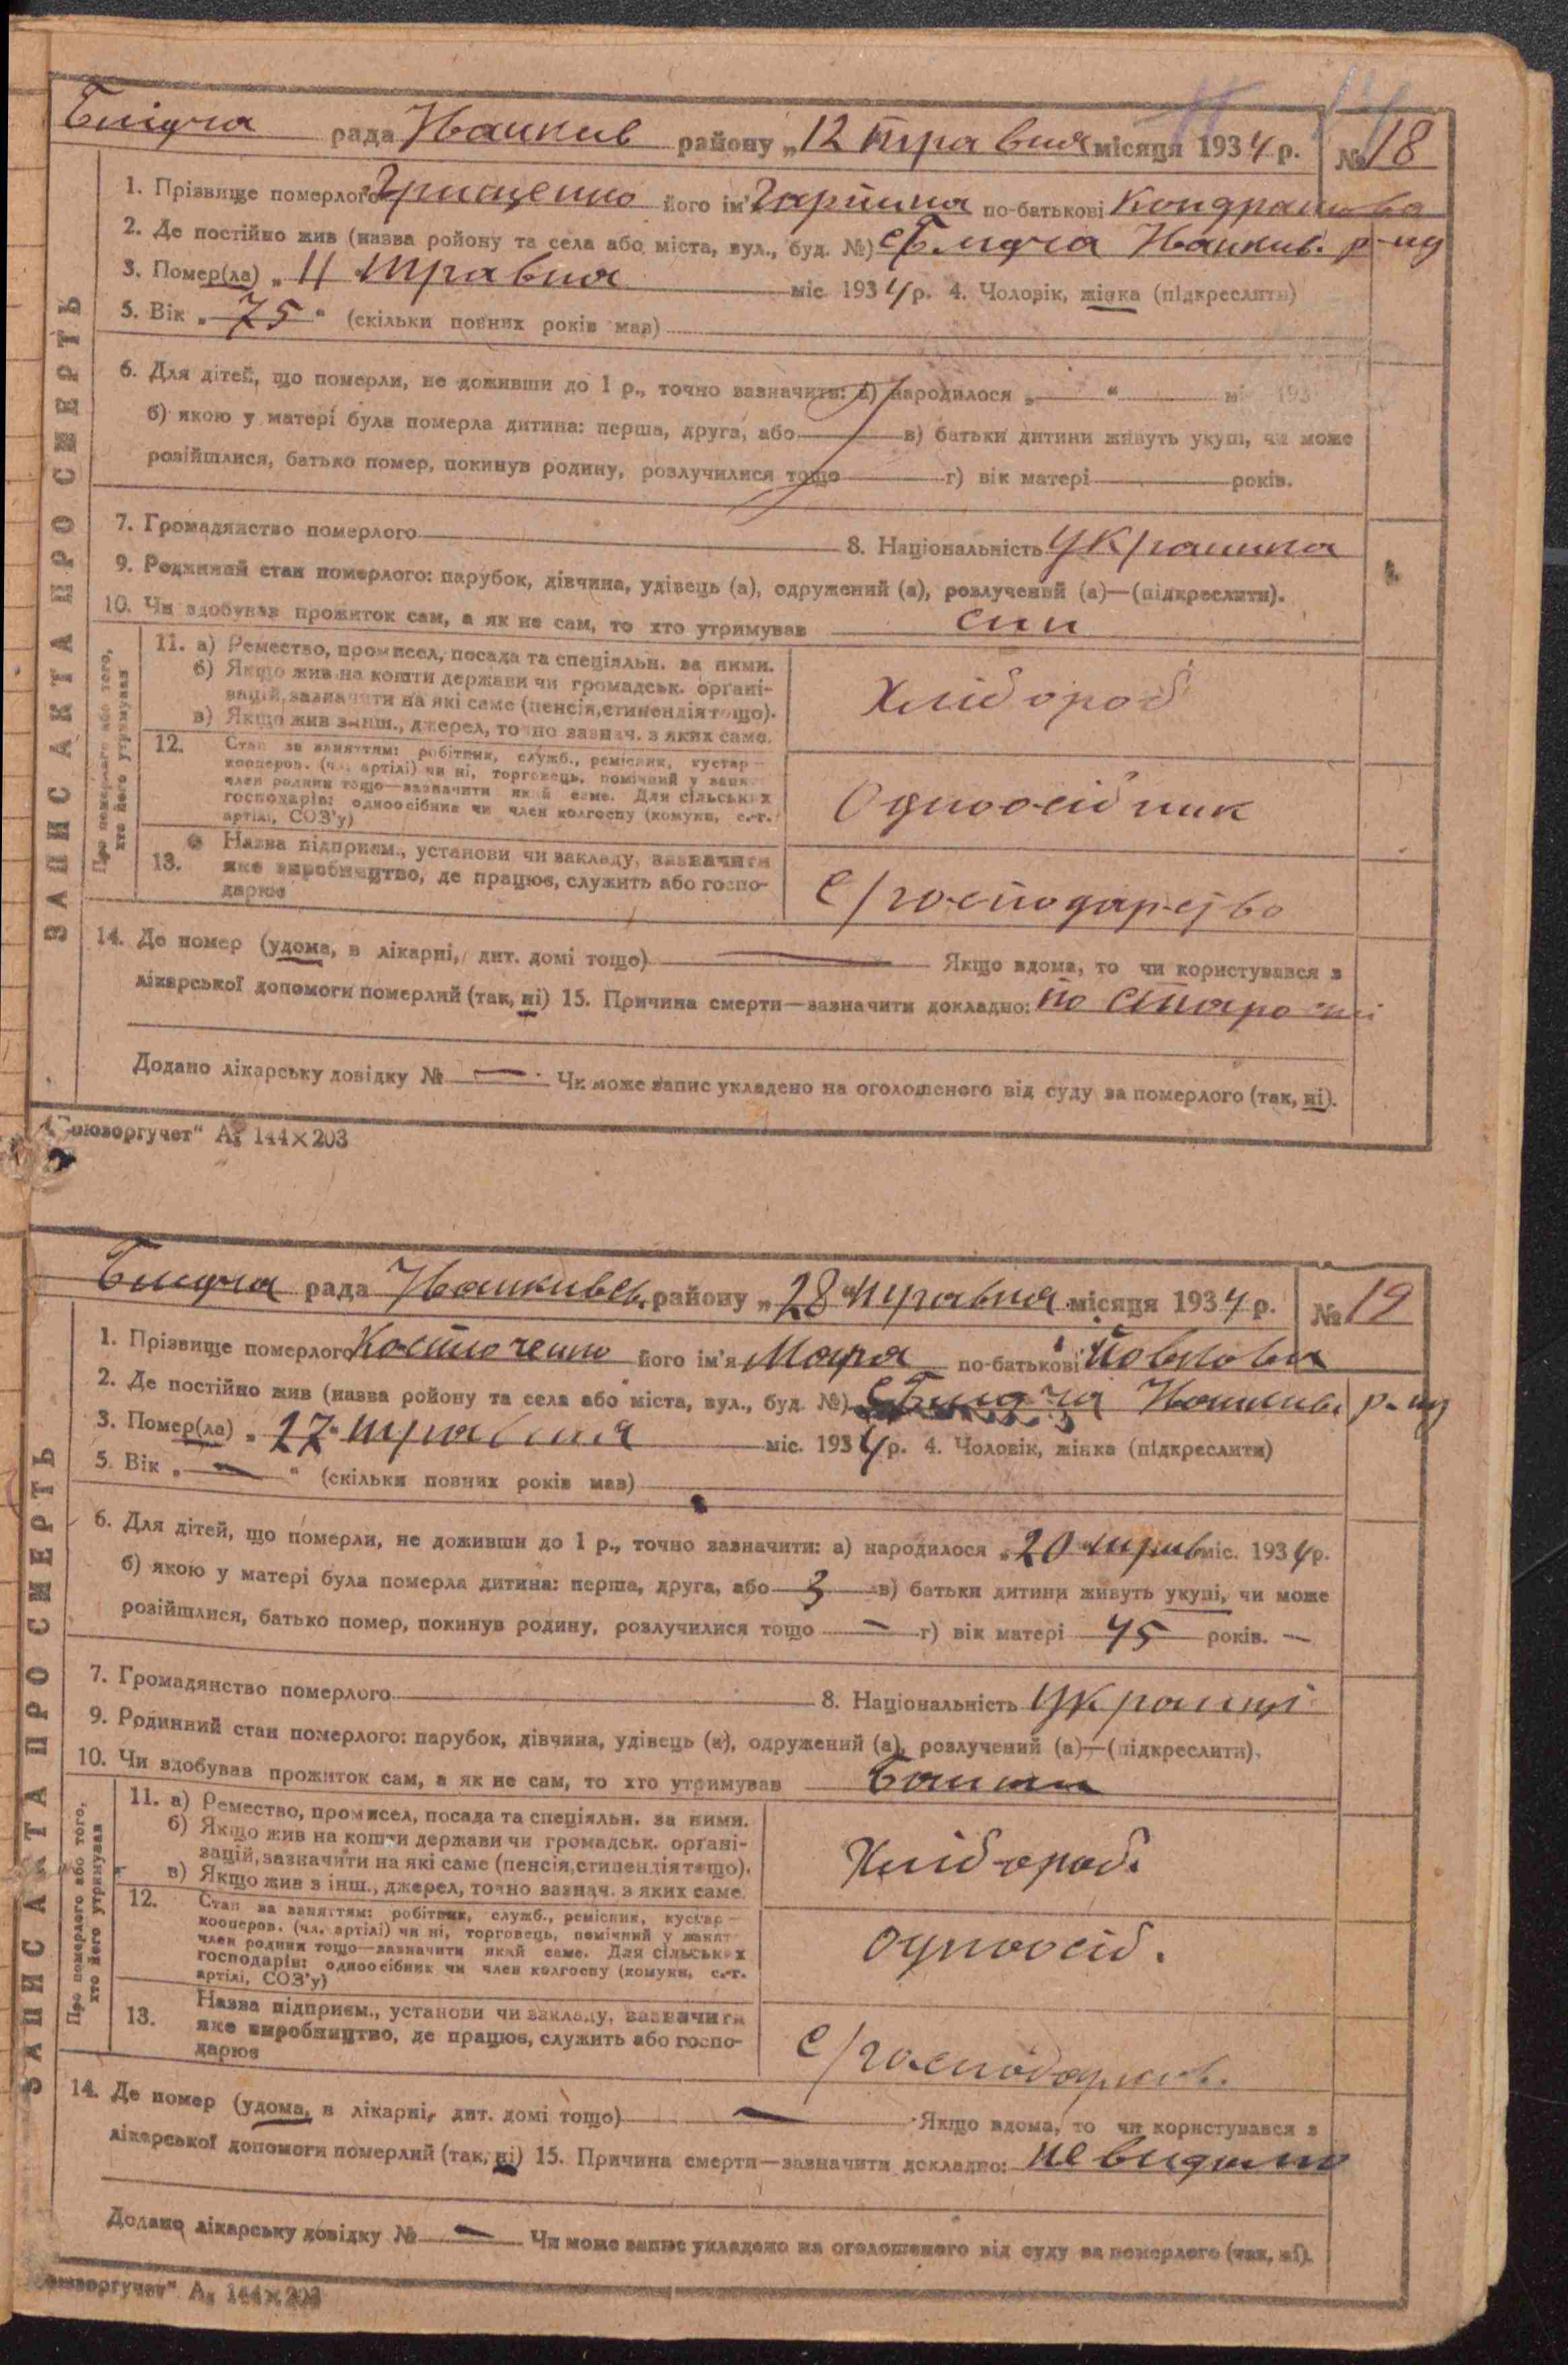 рада район у „12 травня місяця 1934 р. № 18
1. Прізвище померлого Грищенко його ім'я по-батькові Кондратова
2. Де постійно жив (назва ройону та села або міста, вул., буд. №) р-ну
3. Помер(ла) „ 11 травня міс 1934 р. 4. Чоловік, жінка (підкреслити)
5. Вік „ 75 “ (скільки повних років мав)
6. Для дітей, що померли, не доживши до 1 р., точно вазначити: а) народилося „ “ міс 193
б) якою у матері була померла дитина: перша, друга, або в) батьки дитини живуть укупі, чи може
розійшлися, батько помер, покинув родину, розлучилися тощо г) вік матері років.
7. Громадянство померлого 8. Національність Українка
9. Родинний стан померлого: парубок, дівчина, удівець (а), одружений (а), розлучений (а)—(підкреслити).
10. Чи здобував прожиток сам, а як не сам, то хто утримував син
11. а) Ремество, промисел, посада та спеціяльн. за ними.
б) Якщо жив на кошти держави чи громадськ. органі-
зацій, зазначити на які саме (пенсія, стипендія тощо).
в) Якщо жив з інш., джерел, точно зазнач. з яких саме.
Хлібороб
12. Стан за заняттям: робітник, служб., ремісник, кустар—
кооперов. (чл. артілі) чи ні, торговець, помічний у занят.
член родини тощо—зазначити який саме. Для сільських
господарів: одноосібник чи член колгоспу (комуни, с.-г.
артілі, СОЗ'у)
Одноосібник
13. Назва підприєм., установи чи закладу, вазначити
яке виробництво, де працює, служить або госпо-
дарює
с/господарство
14. Де помер (удома, в лікарні, дит. домі тощо) — Якщо вдома, то чи користувався з
лікарської допомоги померлий (так, ні) 15. Причина смерти—зазначити докладно: по старости
Додано лікарську довідку № — Чи може запис укладено на оголошеного від суду за померлого (так, ні).
„Союзоргучет“ А₅ 144×203
ЗАПИС АКТА ПРО СМЕРТЬ
Про померлого або того,
хто його утримував
рада району „28 травня місяця 1934 р. № 19
1. Прізвище померлого Костюченко його ім'я Мара по-батькові
2. Де постійно жив (назва ройону та села або міста, вул., буд. №) р-ну
3. Помер(ла) „ 27 травня міс. 1934 р. 4. Чоловік, жінка (підкреслити)
5. Вік „ — “ (скільки повних років мав)
6. Для дітей, що померли, не доживши до 1 р., точно вазначити: а) народилося „20 трав міс. 1934 р.
б) якою у матері була померла дитина: перша, друга, або 3 в) батьки дитини живуть укупі, чи може
розійшлися, батько помер, покинув родину, розлучилися тощо — г) вік матері 45 років. —
7. Громадянство померлого 8. Національність
9. Родинний стан померлого: парубок, дівчина, удівець (а), одружений (а), розлучений (а)—(підкреслити).
10. Чи здобував прожиток сам, а як не сам, то хто утримував Батьки
11. а) Ремество, промисел, посада та спеціяльн. за ними.
б) Якщо жив на кошти держави чи громадськ. органі-
зацій, зазначити на які саме (пенсія, стипендія тощо).
в) Якщо жив з інш., джерел, точно вазнач. з яких саме.
Хлібороб.
12. Стан за заняттям: робітник, служб., ремісник, кустар—
кооперов. (чл. артілі) чи ні, торговець, помічний у занят.
член родини тощо—зазначити який саме. Для сільських
господарів: одноосібник чи член колгоспу (комуни, с.-г.
артілі, СОЗ'у)
одноосіб.
13. Назва підприєм., установи чи закладу, вазначити
яке виробництво, де працює, служить або госпо-
дарює
с/господарств.
14. Де помер (удома, в лікарні, дит. домі тощо) — Якщо вдома, то чи користувався з
лікарської допомоги померлий (так, ні) 15. Причина смерти—зазначити докладно: невидомо
Додано лікарську довідку № — Чи може запис укладено на оголошеного від суду за померлого (так, ні).
„Союзоргучет“ А₅ 144×203
ЗАПИС АКТА ПРО СМЕРТЬ
Про померлого або того,
хто його утримував